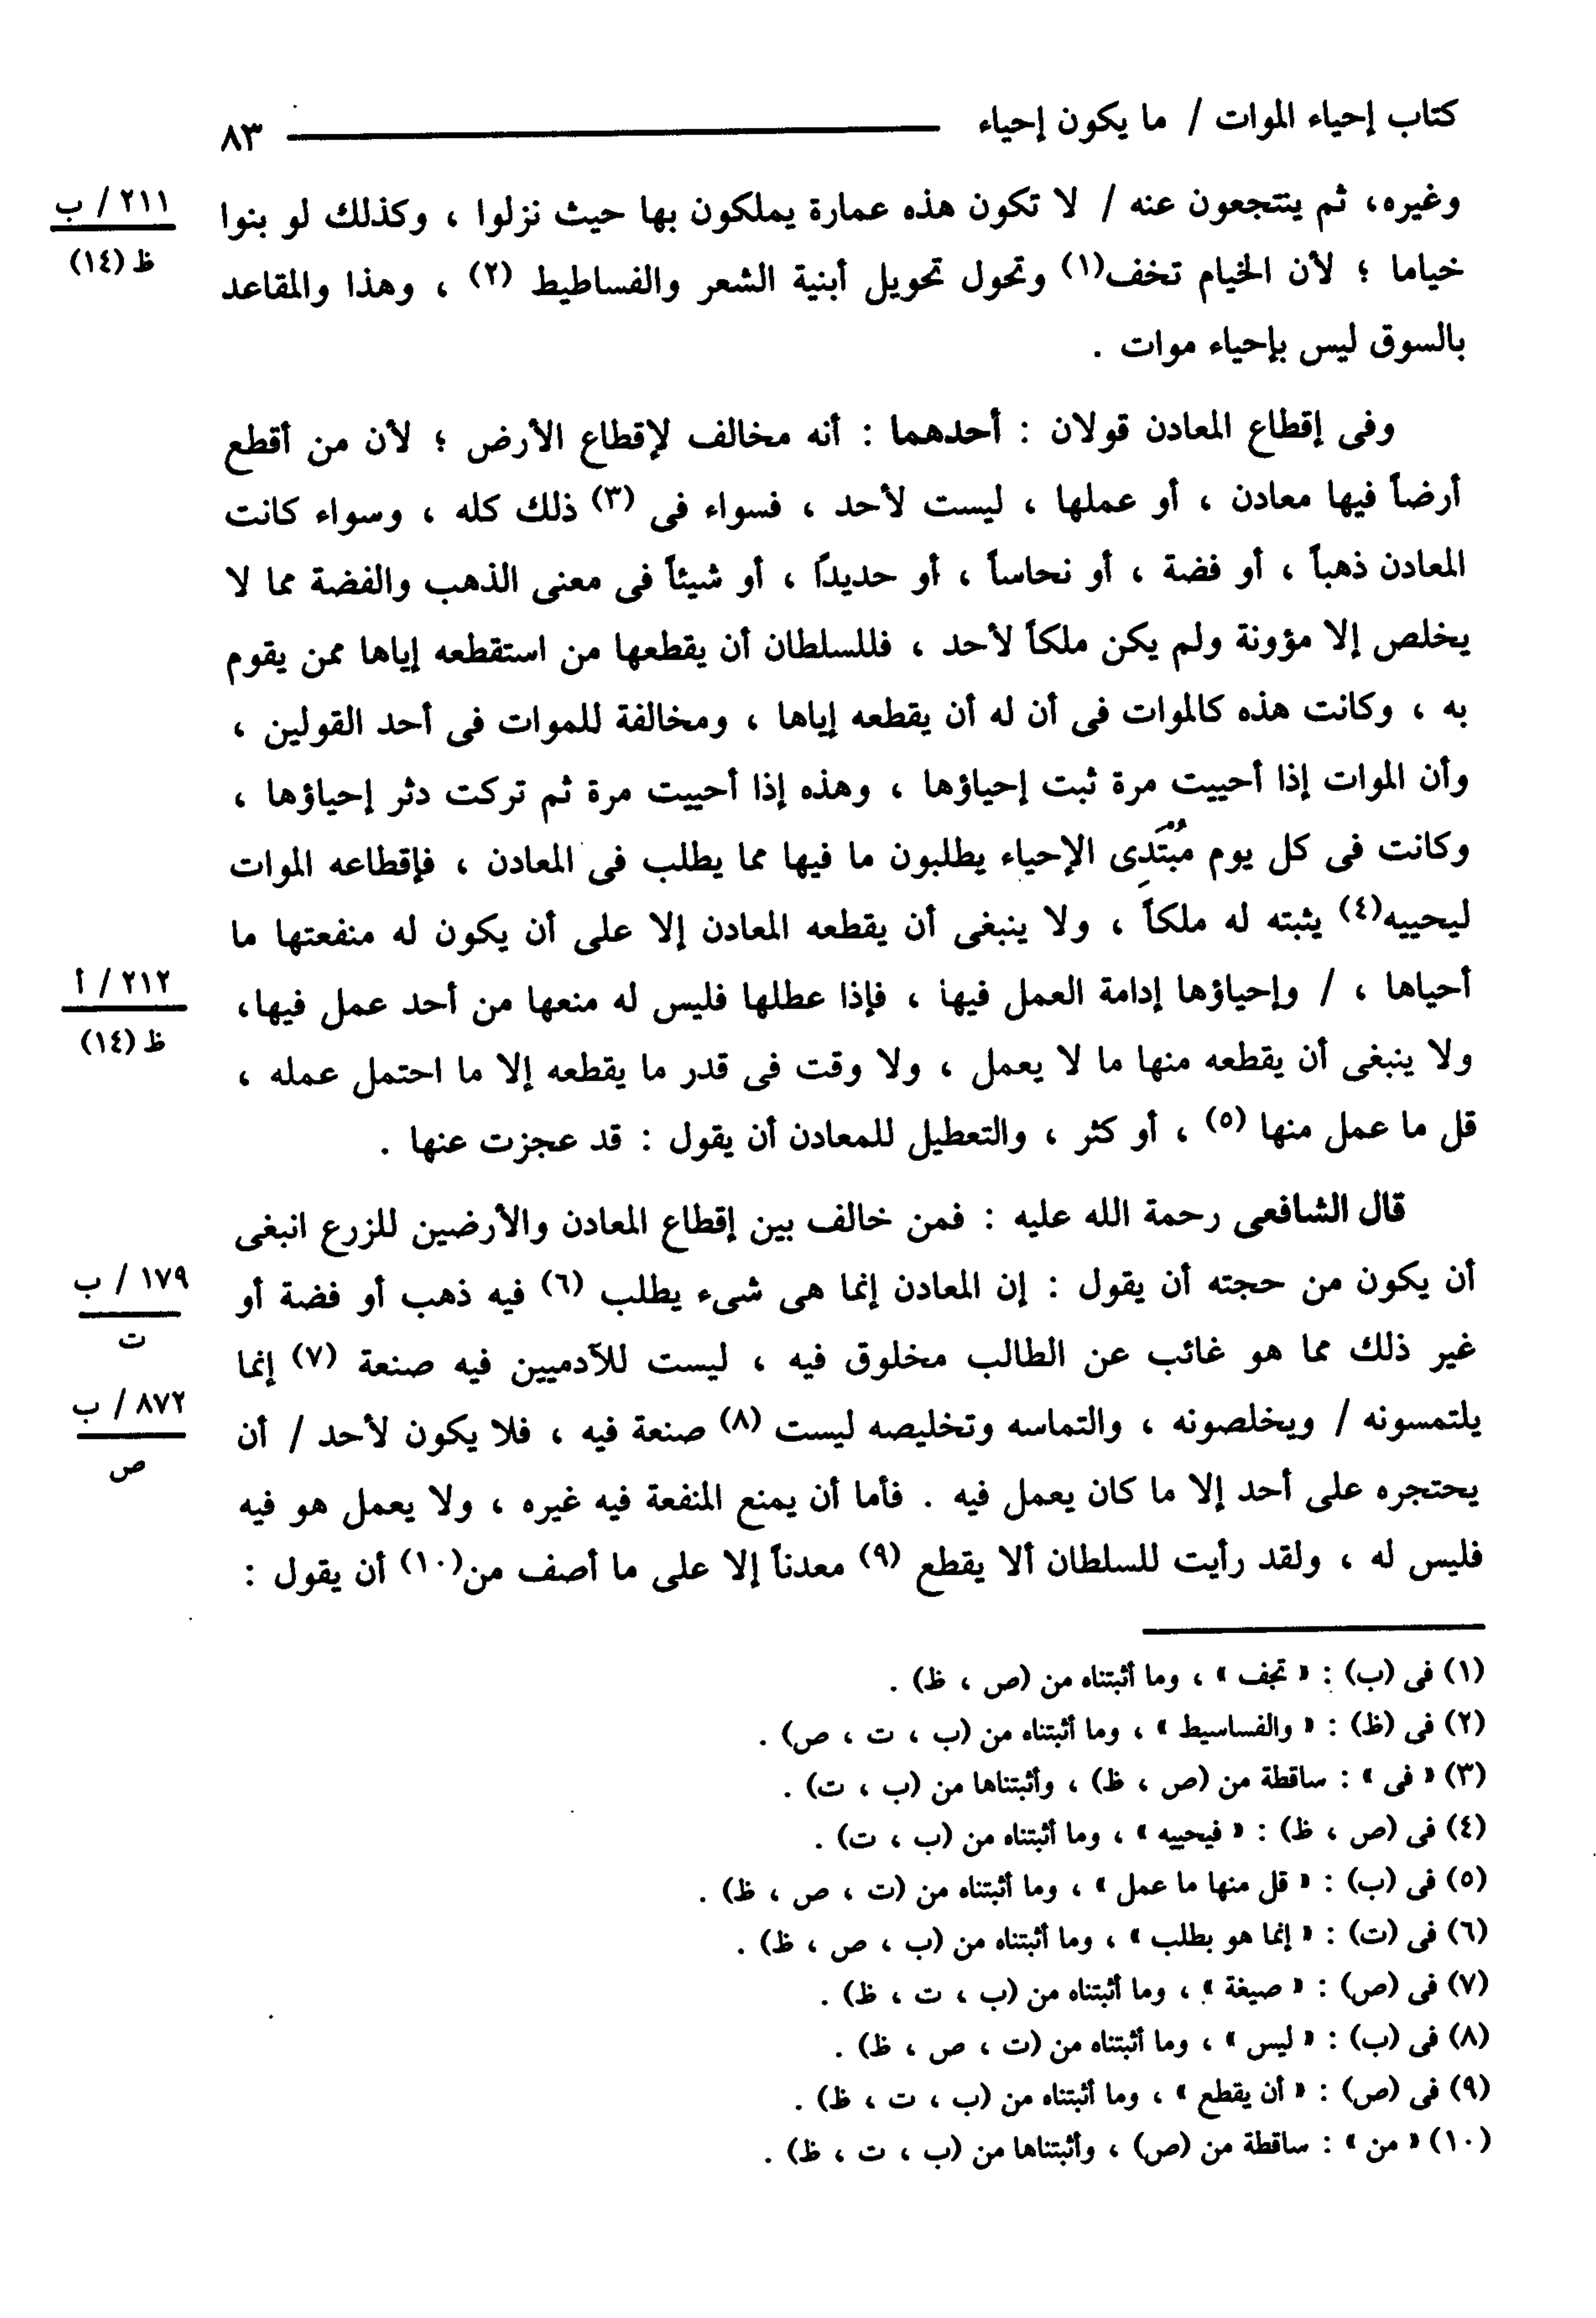 كتاب إحياء الموات / ما يكون إحياء ــــــــــ ٨٣
وغيره، ثم ينتجعون عنه / لا تكون هذه عمارة يملكون بها حيث نزلوا ، وكذلك لو بنوا
٢١١ / ب
ظ (١٤)
خياما ؛ لأن الخيام تخف(١) وتحول تحويل أبنية الشعر والفساطيط (٢) ، وهذا والمقاعد
بالسوق ليس بإحياء موات .
وفى إقطاع المعادن قولان : أحدهما : أنه مخالف لإقطاع الأرض ؛ لأن من أقطع
أرضاً فيها معادن ، أو عملها ، ليست لأحد ، فسواء فى (٣) ذلك كله ، وسواء كانت
المعادن ذهباً ، أو فضة ، أو نحاساً ، أو حديداً ، أو شيئاً فى معنى الذهب والفضة مما لا
يخلص إلا مؤونة ولم يكن ملكاً لأحد ، فللسلطان أن يقطعها من استقطعه إياها ممن يقوم
به ، وكانت هذه كالموات فى أن له أن يقطعه إياها ، ومخالفة للموات فى أحد القولين ،
وأن الموات إذا أحييت مرة ثبت إحياؤها ، وهذه إذا أحييت مرة ثم تركت دثر إحياؤها ،
وكانت فى كل يوم مُبْتَدِى الإحياء يطلبون ما فيها مما يطلب فى المعادن ، فإقطاعه الموات
ليحييه(٤) يثبته له ملكاً ، ولا ينبغى أن يقطعه المعادن إلا على أن يكون له منفعتها ما
أحياها ، / وإحياؤها إدامة العمل فيها ، فإذا عطلها فليس له منعها من أحد عمل فيها،
٢١٢ / أ
ظ (١٤)
ولا ينبغى أن يقطعه منها ما لا يعمل ، ولا وقت فى قدر ما يقطعه إلا ما احتمل عمله ،
قل ما عمل منها (٥) ، أو كثر ، والتعطيل للمعادن أن يقول : قد عجزت عنها .
قال الشافعى رحمة الله عليه : فمن خالف بين إقطاع المعادن والأرضين للزرع انبغى
أن يكون من حجته أن يقول : إن المعادن إنما هى شىء يطلب (٦) فيه ذهب أو فضة أو
١٧٩ / ب
ت
غير ذلك مما هو غائب عن الطالب مخلوق فيه ، ليست للآدميين فيه صنعة (٧) إنما
يلتمسونه / ويخلصونه ، والتماسه وتخليصه ليست (٨) صنعة فيه ، فلا يكون لأحد / أن
٨٧٢ / ب
ص
يحتجره على أحد إلا ما كان يعمل فيه . فأما أن يمنع المنفعة فيه غيره ، ولا يعمل هو فيه
فليس له ، ولقد رأيت للسلطان ألا يقطع (٩) معدناً إلا على ما أصف من(١٠) أن يقول :
(١) فى (ب) : « تجف » ، وما أثبتناه من (ص ، ظ) .
(٢) فى (ظ) : « والفساسيط » ، وما أثبتناه من (ب ، ت ، ص) .
(٣) « فى » : ساقطة من (ص ، ظ) ، وأثبتناها من (ب ، ت) .
(٤) فى (ص ، ظ) : « فيحييه » ، وما أثبتناه من (ب ، ت) .
(٥) فى (ب) : « قل منها ما عمل » ، وما أثبتناه من (ت ، ص ، ظ) .
(٦) فى (ت) : « إنما هو بطلب » ، وما أثبتناه من (ب ، ص ، ظ) .
(٧) فى (ص) : « صيغة » ، وما أثبتناه من (ب ، ت ، ظ) .
(٨) فى (ب) : « ليس » ، وما أثبتناه من (ت ، ص ، ظ) .
(٩) فى (ص) : « أن يقطع » ، وما أثبتناه من (ب ، ت ، ظ) .
(١٠) « من » : ساقطة من (ص) ، وأثبتناها من (ب ، ت ، ظ) .